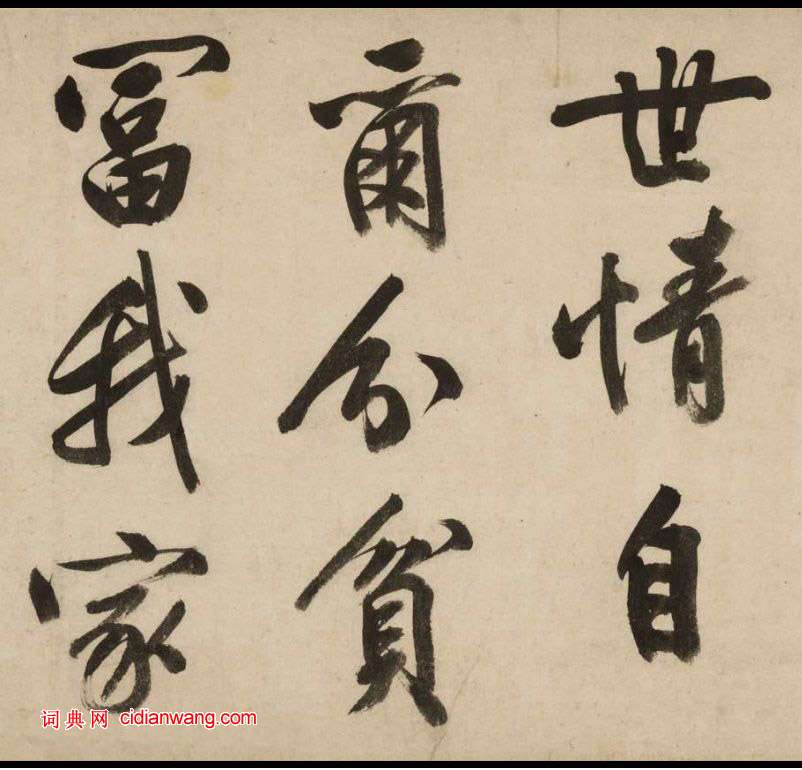 世情自
爾分貧
冨我家
词典网 cidianwang.com